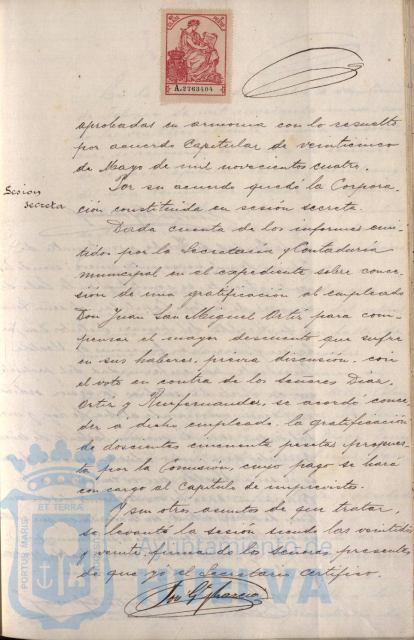 A.2763404
aprobadas en armonia con lo resuelto
por acuerdo Capitular de veinticinco
de Mayo de mil novecientos cuatro.
Sesion
secreta
Por su acuerdo quedó la Corpora-
ción constituida en sesión secreta.
Dada cuenta de los informes emi-
tidos por la Secretaria y Contaduría
municipal en el expediente sobre conce-
sión de una gratificación al empleado
Don Juan San Miguel Ortiz para com-
pensar el mayor descuento que sufre
en sus haberes, previa discusión, con
el voto en contra de los Señores Diaz,
Ortiz y se acordó conce-
der a dicho empleado la gratificación
de doscientas cincuenta pesetas propues-
ta por la Comisión, cuyo pago se hará
con cargo al Capítulo de imprevistos.
Y sin otros asuntos de que tratar,
se levantó la sesión siendo las veintidos
y veinte, firman de los señores presentes
de que yo el Secretario certifico.
PORTUS MARIS
ET TERRÆ
Ayuntamiento de
HUELVA